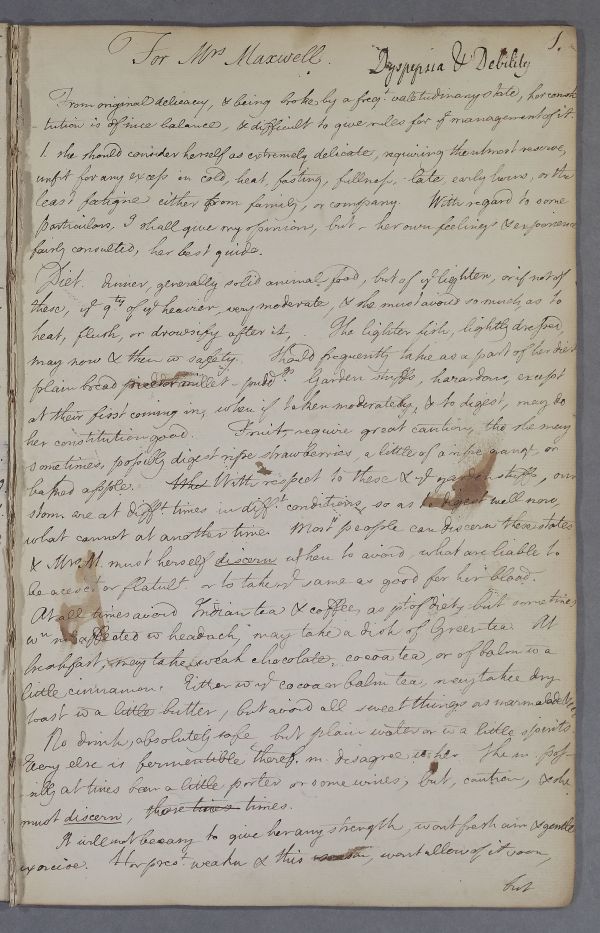 1.
For Mrs Maxwell.
Dyspepsia & Debility
From original delicacy, & being broke by a freqt. valetudinary state, her consti
-tution is off nice balance, & difficult to give rules for ye management of it.
1. she should consider herself as extremely delicate, requiring the utmost reserve,
unfit for any excess in cold, heat, fasting, fullness, late, early hours, or the
least fatigue either from family, or company. With regard to some
particulars, I shall give my opinion, but - her own feelings & experience
fairly consulted, her best guide.
Diet. dinner, generally solid animal food, but of ye lighter, or if not of
these, ye qty of ye heavier, very moderate, & she must avoid so much as to
heat, flush, or drowsify after it, The lighter fish, lightly dressed,
may now & then w safety. Should frequently take as a part of her diet
plain bread millet - pudds. Garden stuffs, hazardous, except
at their first coming in, when if taken moderately, & to digest, may do
her constitution good. Fruit, require great caution, tho she may
sometimes, possibly digest ripe strawberries, a little of a ripe or
baked apple. With respect to these & ye garden stuffs, our
stom. are at difft times in difft. conditions, so as to digest well now,
what cannot at another time. Most people can discern these states
& Mrs M. must herself discern when to avoid, what are liable to
be acesct or flatult. or to take ye same as good for her blood.
At all times avoid Indian tea & coffee, as pt of diet, but sometimes
wn affected w headach, may take a dish of Green tea. At
breakfast, may take weak chocolate, cocoa tea, or of balm w a
little cinnamon. Either w ye cocoa or balm tea, may take dry
toast w a little butter, but avoid all sweet things as marmalade &c.
No drink, absolutely safe but plain water or w a little spirits
Every else is fermentible theref. m. disagree w her She m. pos-
sibly at times bear a little porter or some wines, but, caution, & she
must discern, these times times.
It will not be easy to give her any strength, wout fresh air & gentle
exercise. Her prest. weakn & this season, wont allow of it soon,
but